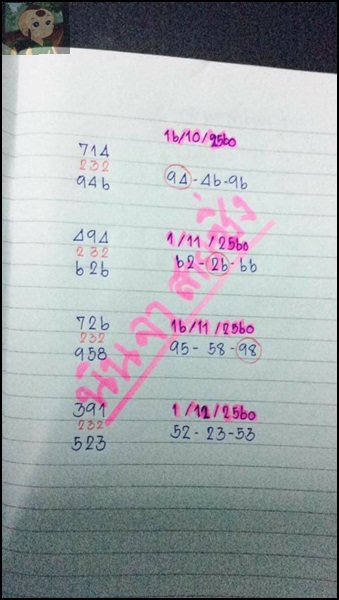 16/10/2560
714
232
946
94-46-96
494
232
626
1/11/2560
62-26-66
726
232
958
16/11/2560
95-58-98
391
232
523
1/12/2560
52-23-53